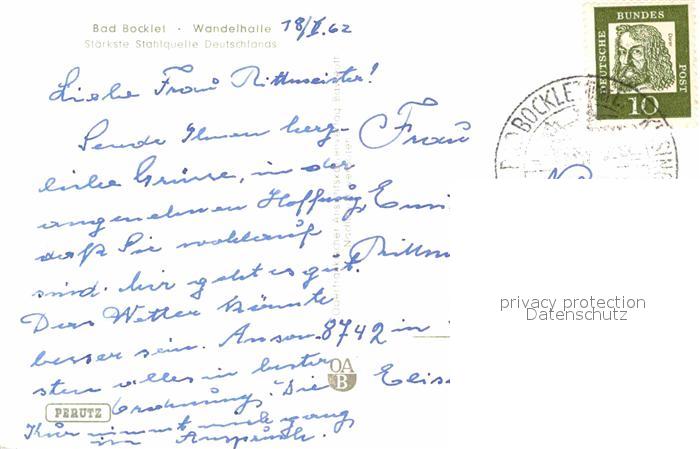 Bad Bocklet · Wandelhalle
Stärkste Stahlquelle Deutschlands
18/ .62
Liebe Frau Rittmeister!
Sende Ihnen herz-
liche Grüsse, in der
angenehmen Hoffnung,
daß Sie wohlauf
sind. Mir geht es gut.
Das Wetter könnte
besser sein. Anson-
sten alles in bester
Ordnung. Die
Kur nimmt mich ganz
in Anspruch.
PERUTZ
OA
B
Frau
Emi
Rittm
8742 in
Elis
DEUTSCHE
BUNDES
POST
Dürer
10
BAD BOCKLET
privacy protection
Datenschutz